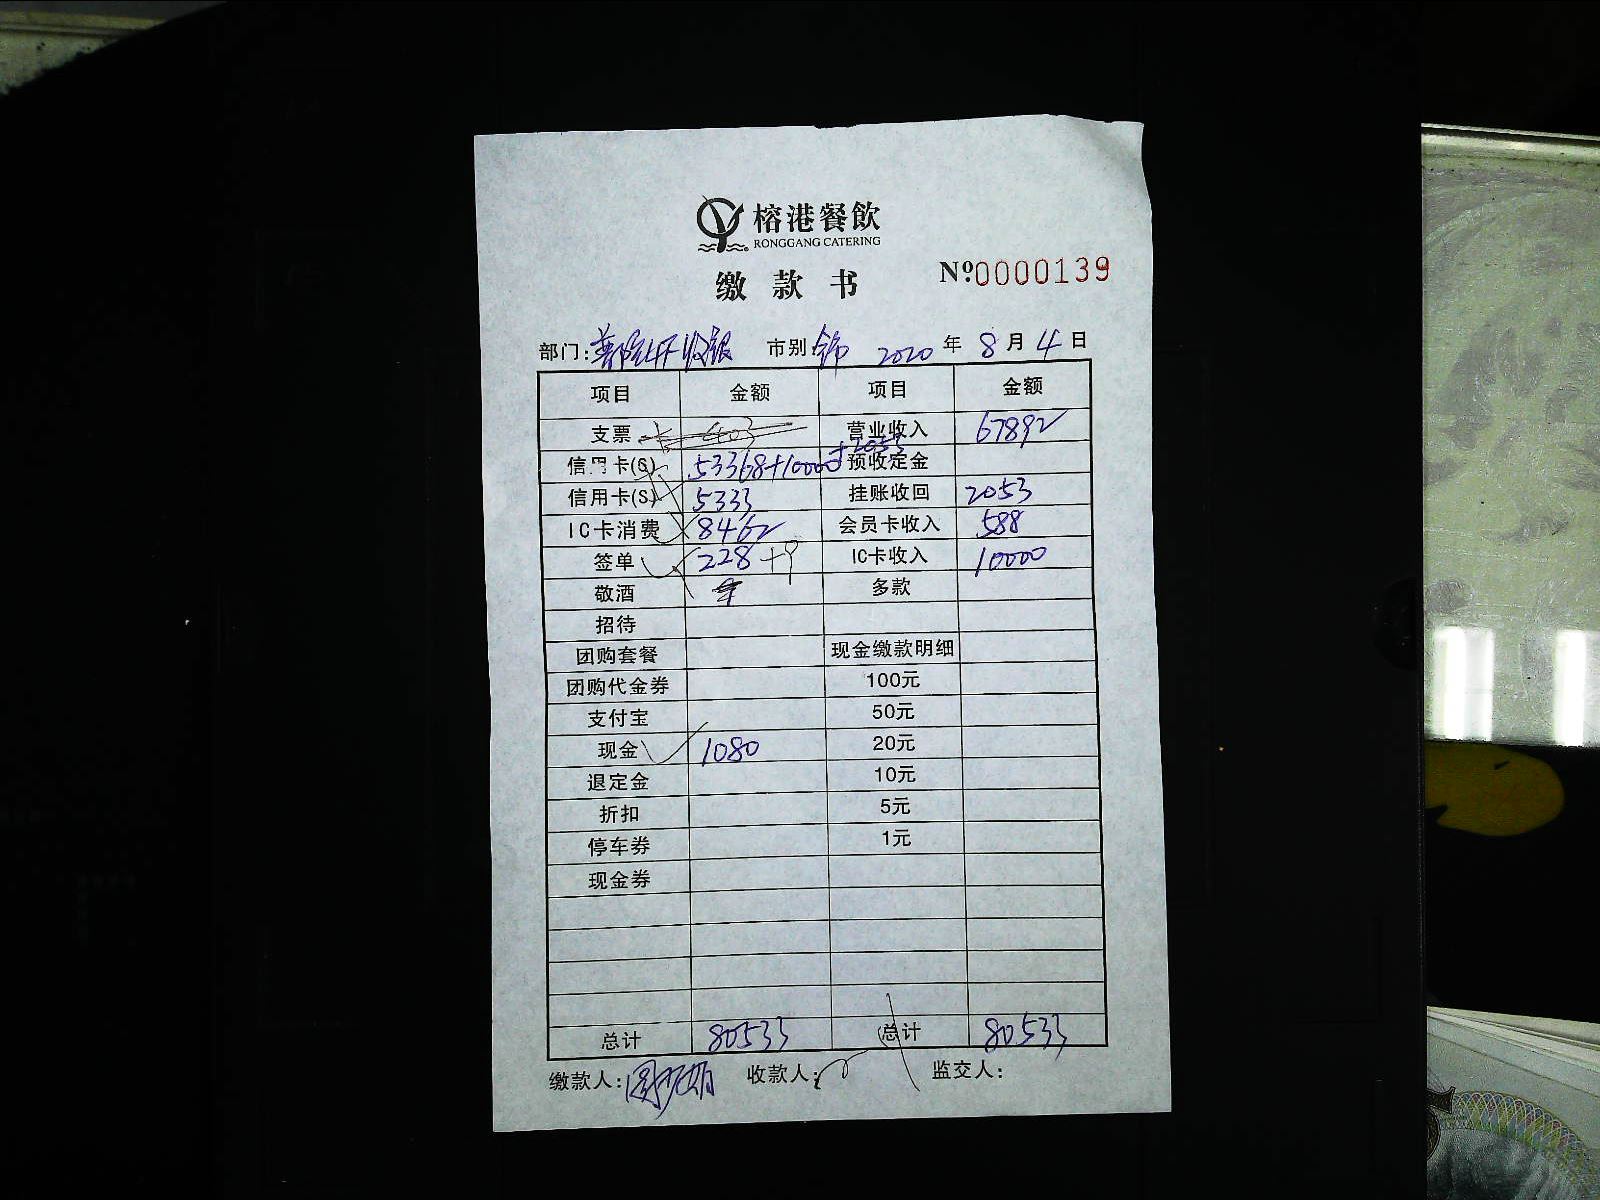 榕港餐飲
RONGGANG CATERING
缴款书
Nº:0000139
部门: 收银 市别 2020 年 8 月 4 日
项目 金额 项目 金额
支票 营业收入 67892
信用卡(S) 53368+10000+2053 预收定金
信用卡(S) 5333 挂账收回 2053
IC卡消费 8462 会员卡收入 588
签单 228 IC卡收入 10000
敬酒 多款
招待
团购套餐 现金缴款明细
团购代金券 100元
支付宝 50元
现金 1080 20元
退定金 10元
折扣 5元
停车券 1元
现金券
总计 80533 总计 80533
缴款人: 收款人: 监交人: